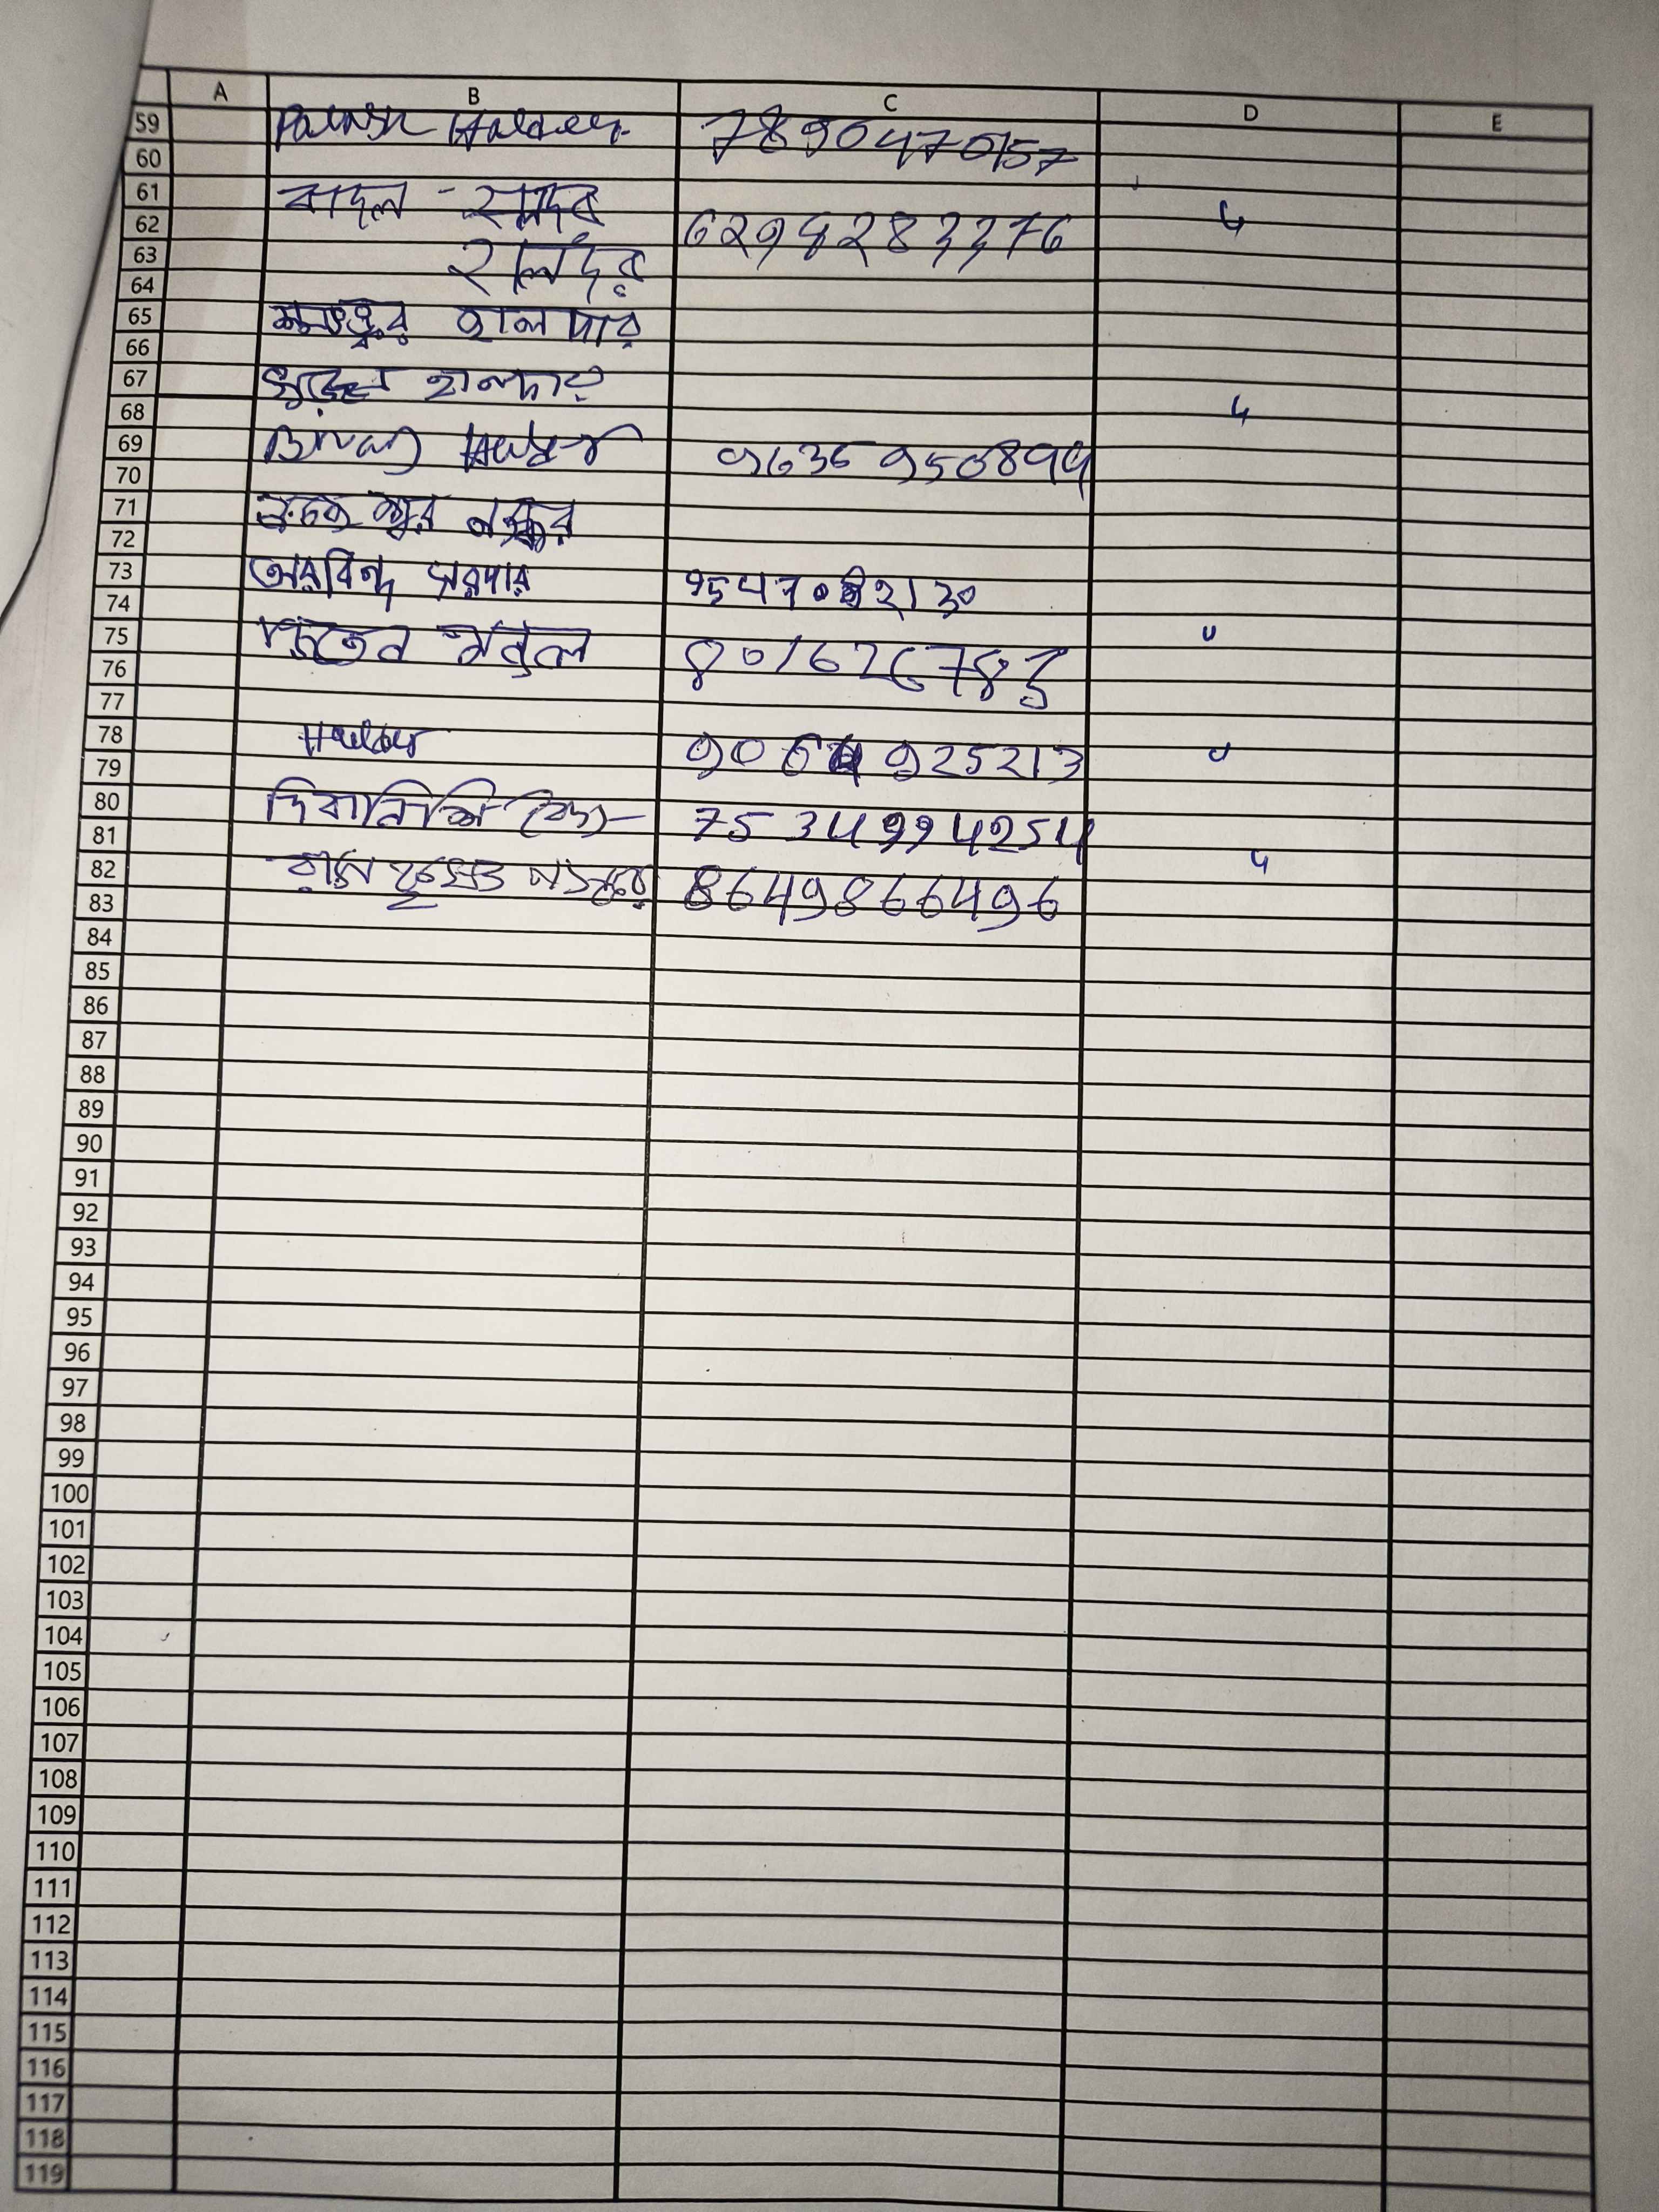 A B C D E
59 Palash Halder 7890470157
60
61 বাদল
62 6298283376
63 হালদার
64
65 শুভঙ্কর হালদার
66
67 হালদার
68
69 Binay Halder 9635950899
70
71 নস্কর
72
73 অরবিন্দ সরদার
74
75 মন্ডল 801626783
76
77
78 Halder 9064925213
79
80 দিবানিশি 7534994254
81
82 নস্কর 8649866496
83
84
85
86
87
88
89
90
91
92
93
94
95
96
97
98
99
100
101
102
103
104
105
106
107
108
109
110
111
112
113
114
115
116
117
118
119